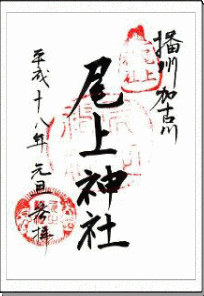 播州加古川
尾上神社
平成十八年元旦参拝